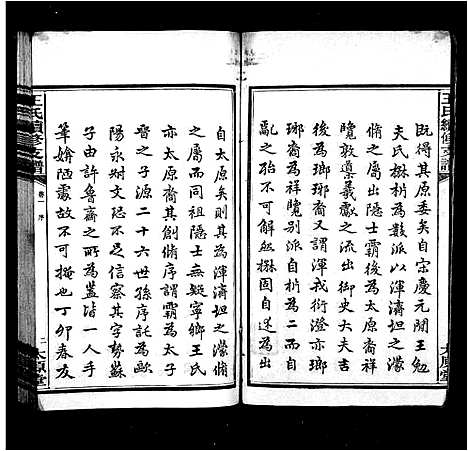 王氏續修支譜
既得其原委矣自宋慶元間王勉
夫氏楙析為數派以渾濟坦之濛
脩之屬出隱士霸後為太原裔祥
覽敦導羲獻之流出御史大夫吉
後為瑯裔又謂渾戎衍澄亦瑯
瑯裔為祥覽別派自祥以
亂之殆不可解楙固自述為出
太原堂
自太原矣則其為渾濟坦之濛脩
之屬而同祖隱士無疑寧鄉王氏
亦太原裔其創脩序謂霸為太子
晉之子源二十六世孫序託為歐
陽永叔文忠不足信察其字勢蘇
子由許魯齋之所為蓋皆一人手
筆媕陋處故不可掩也丁卯春友
王氏續修支譜
卷一 序
二
太原堂